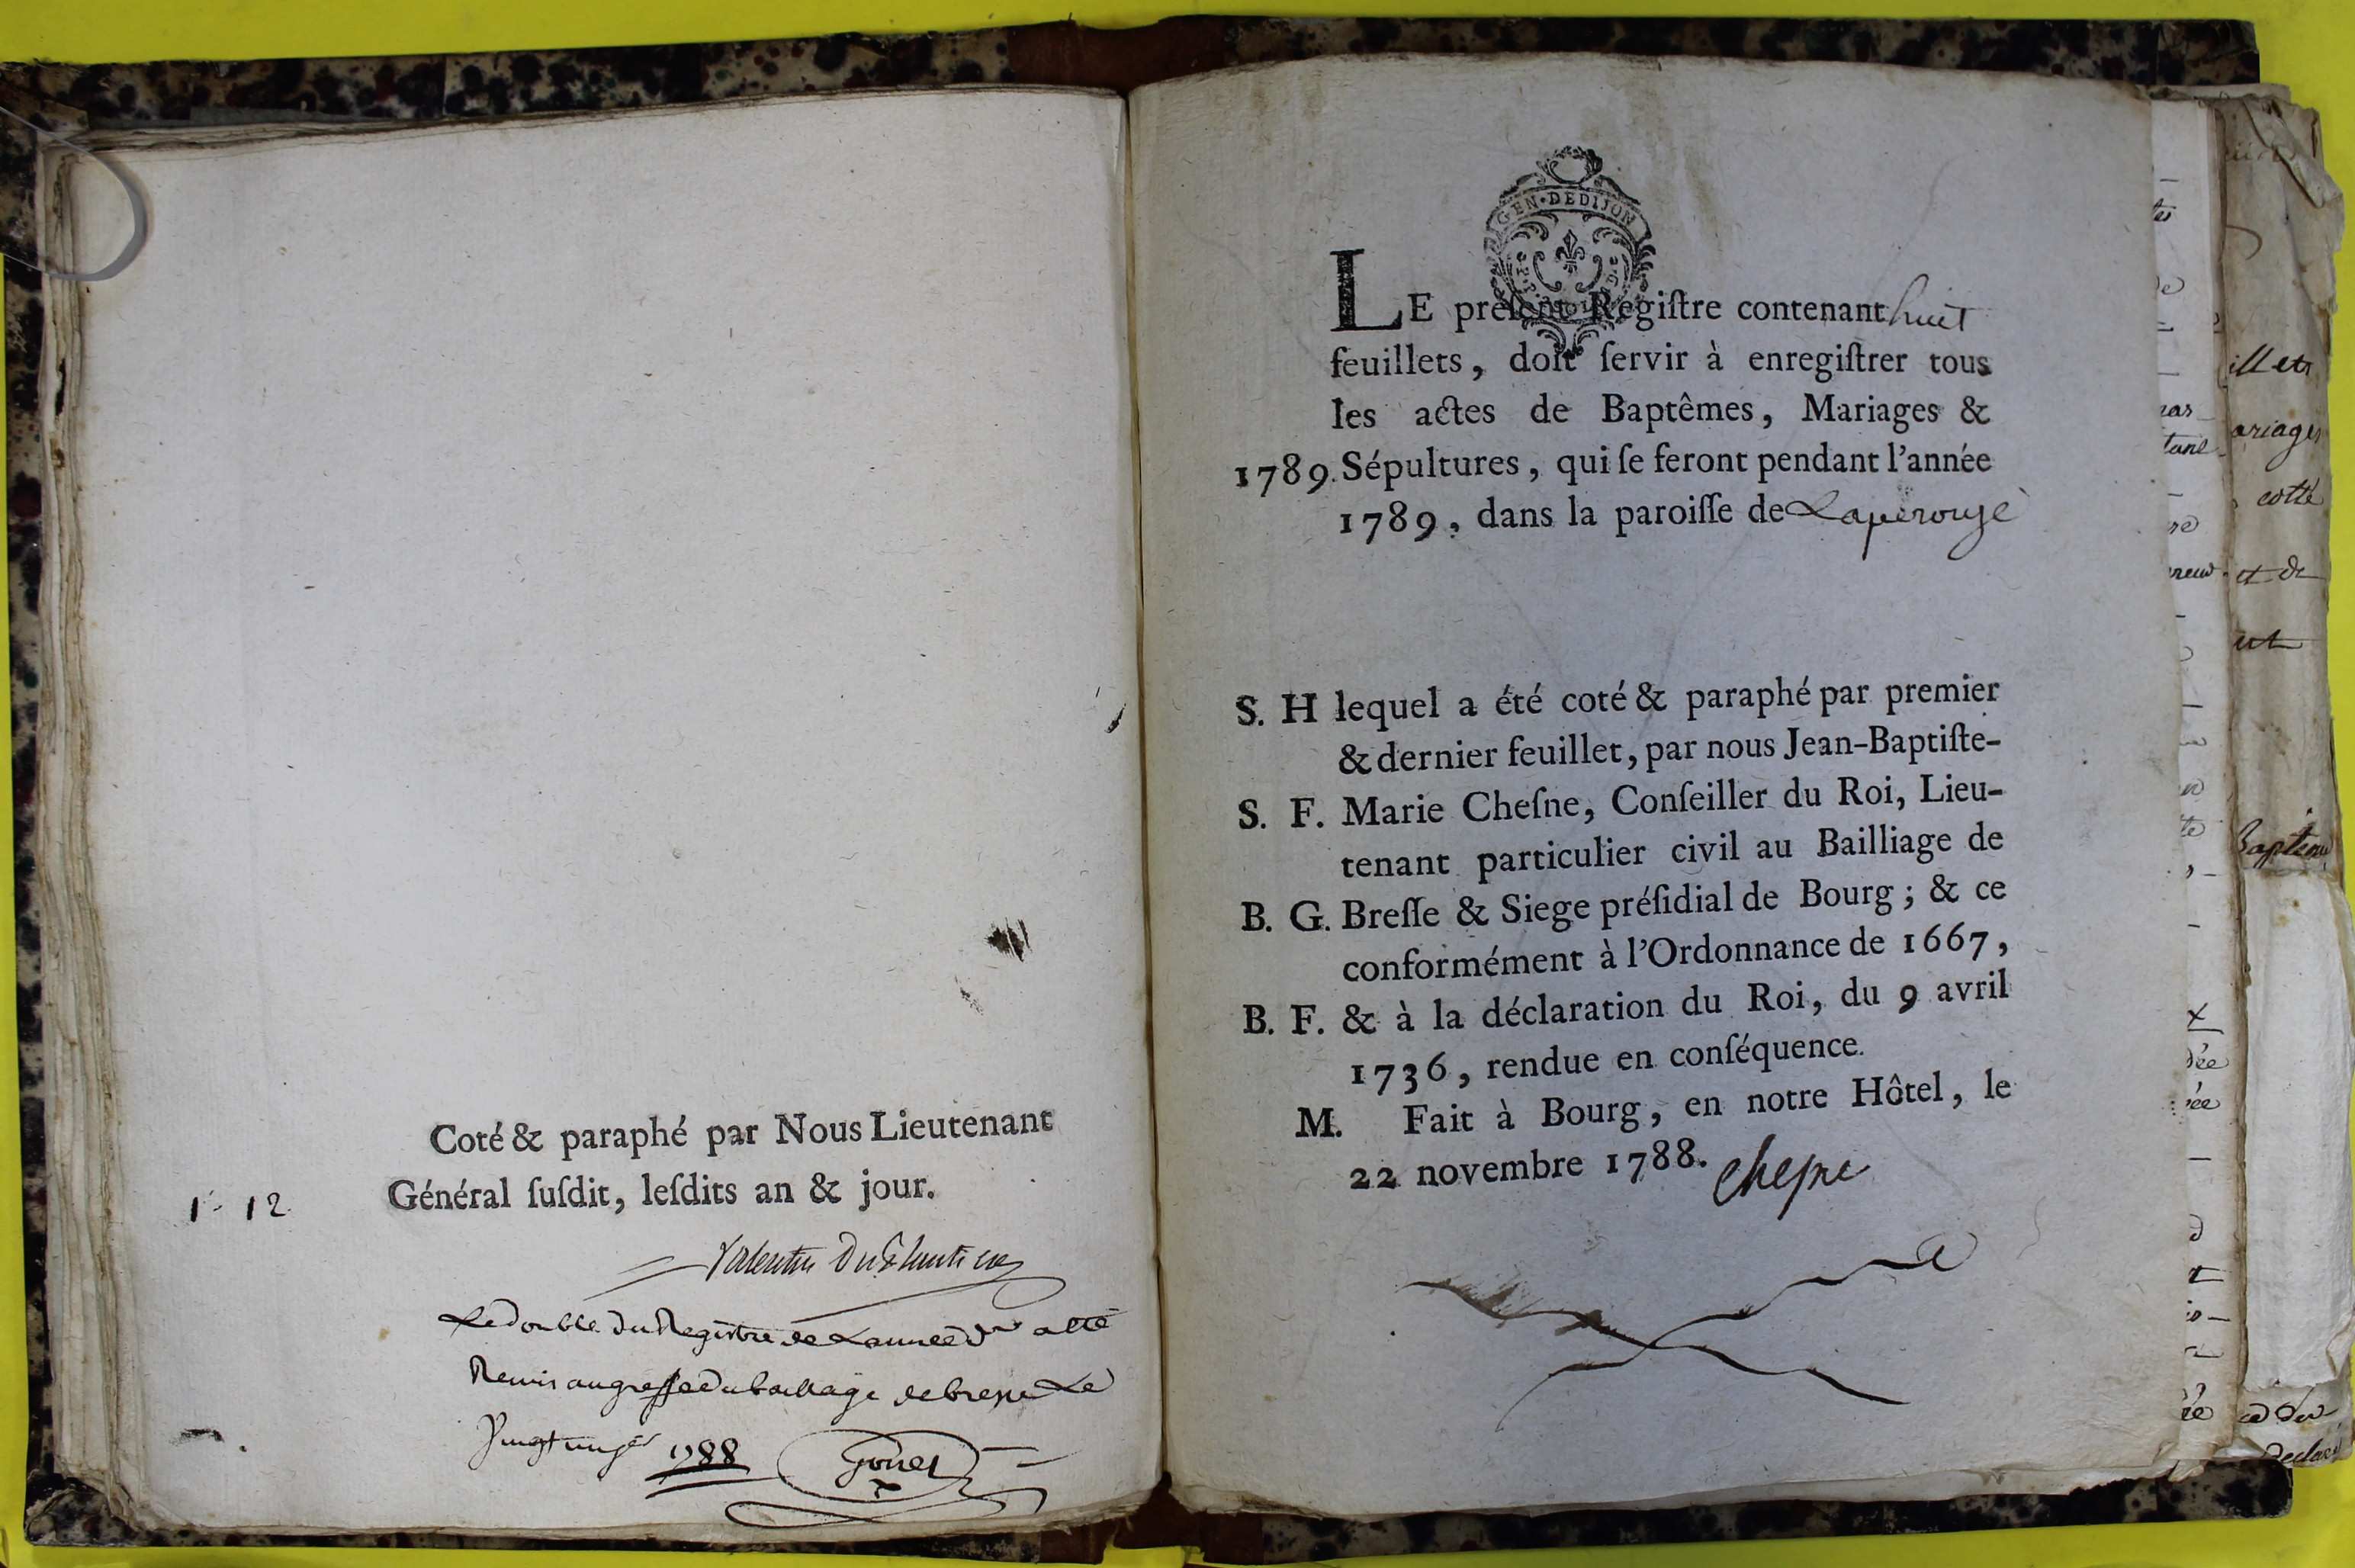 Coté & paraphé par Nous Lieutenant
Général ſuſdit, leſdits an & jour.
1. 12
Valentin Du
Le double du Registre de Lannee dr a été
Remis au greffe du baillage de bresse Le
Vingt un 1788
GEN·DEDIJON
LE préſent Regiſtre contenant huit
feuillets, doit ſervir à enregiſtrer tous
les actes de Baptêmes, Mariages &
1789. Sépultures, qui ſe feront pendant l'année
1789, dans la paroiſſe de Laperouse
S. H lequel a été coté & paraphé par premier
& dernier feuillet, par nous Jean-Baptiſte-
S. F. Marie Cheſne, Conſeiller du Roi, Lieu-
tenant particulier civil au Bailliage de
B. G. Breſſe & Siege préſidial de Bourg; & ce
conformément à l'Ordonnance de 1667,
B. F. & à la déclaration du Roi, du 9 avril
1736, rendue en conſéquence.
M. Fait à Bourg, en notre Hôtel, le
22 novembre 1788. Chesne
illets
ariages
cotté
et de
Baptem